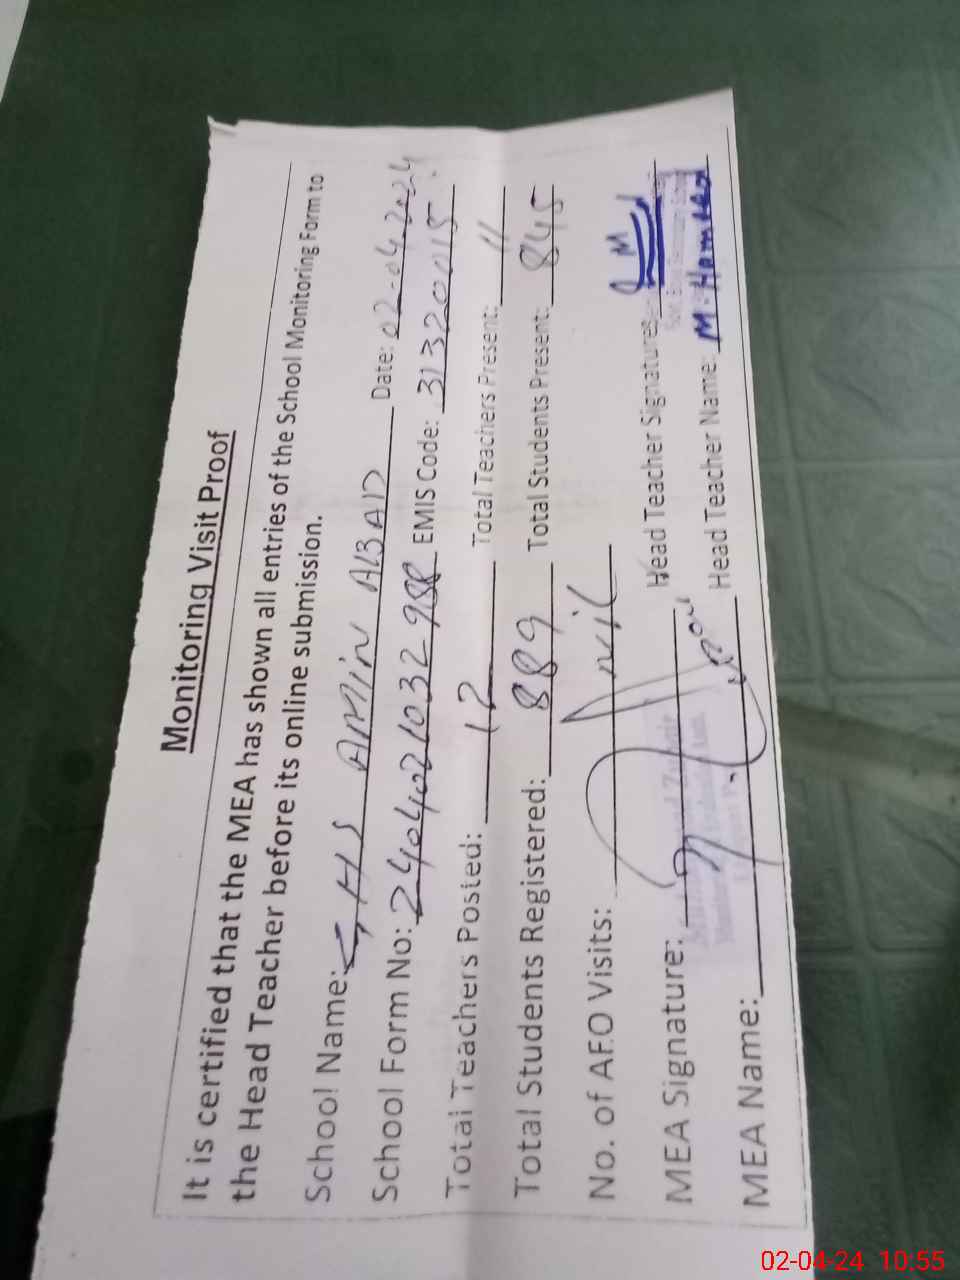 Monitoring Visit Proof
It is certified that the MEA has shown all entries of the School Monitoring Form to
the Head Teacher before its online submission.
School Name: GHS AMIN ABAD Date: 02-04-2024
School Form No: EMIS Code: 31320015
Total Teachers Posted: 12 Total Teachers Present: 11
Total Students Registered: 889 Total Students Present: 845
No. of AEO Visits: nil
MEA Signature: Head Teacher Signature:
MEA Name: Head Teacher Name: M. Hameed
02-04-24 10:55